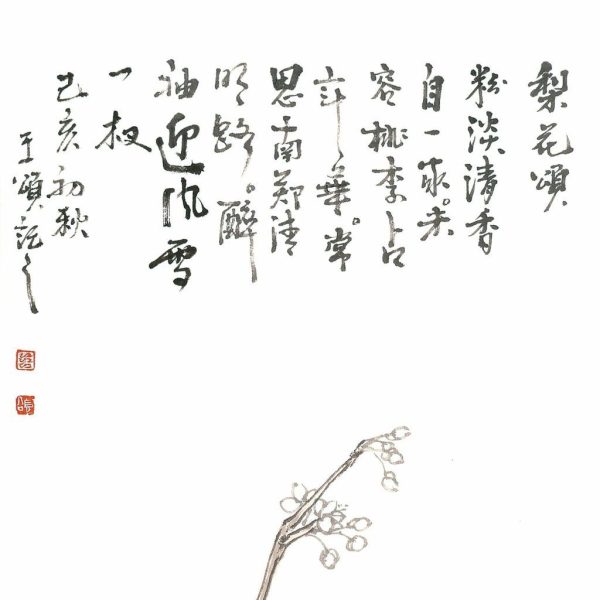 梨花頌
粉淡清香
自一家。未
容桃李占
年華。常
思南郑清
明路。醉
袖迎风雪
一杈
己亥初秋
王頌記之